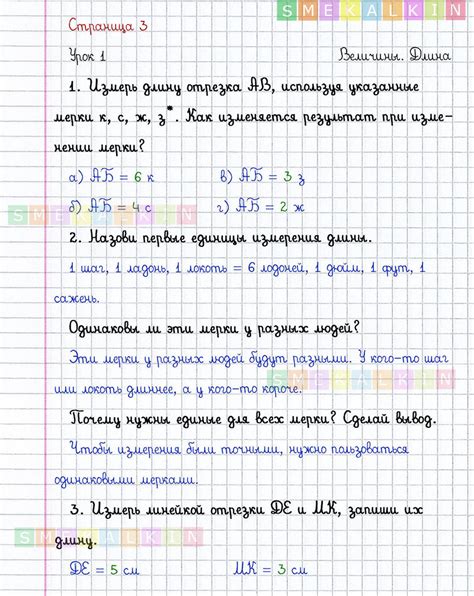 SMEKALKIN
Страница 3
Урок 1 Величины. Длина
1. Измерь длину отрезка АВ, используя указанные
мерки к, с, ж, з*. Как изменяется результат при изме-
нении мерки?
а) АБ = 6 к в) АБ = 3 з
SMEKALKIN
б) АБ = 4 с г) АБ = 2 ж
2. Назови первые единицы измерения длины.
1 шаг, 1 ладонь, 1 локоть = 6 лодоней, 1 дюйм, 1 фут, 1
сажень.
Одинаковы ли эти мерки у разных людей?
Эти мерки у разных людей будут разными. У кого-то шаг
SMEKALKIN
или локоть длиннее, а у кого-то короче.
Почему нужны единые для всех мерки? Сделай вывод.
Чтобы измерения были точными, нужно пользоваться
одинаковыми мерками.
3. Измерь линейкой отрезки DE и МК, запиши их
SMEKALKIN
длину.
DE = 5 см МК = 3 см